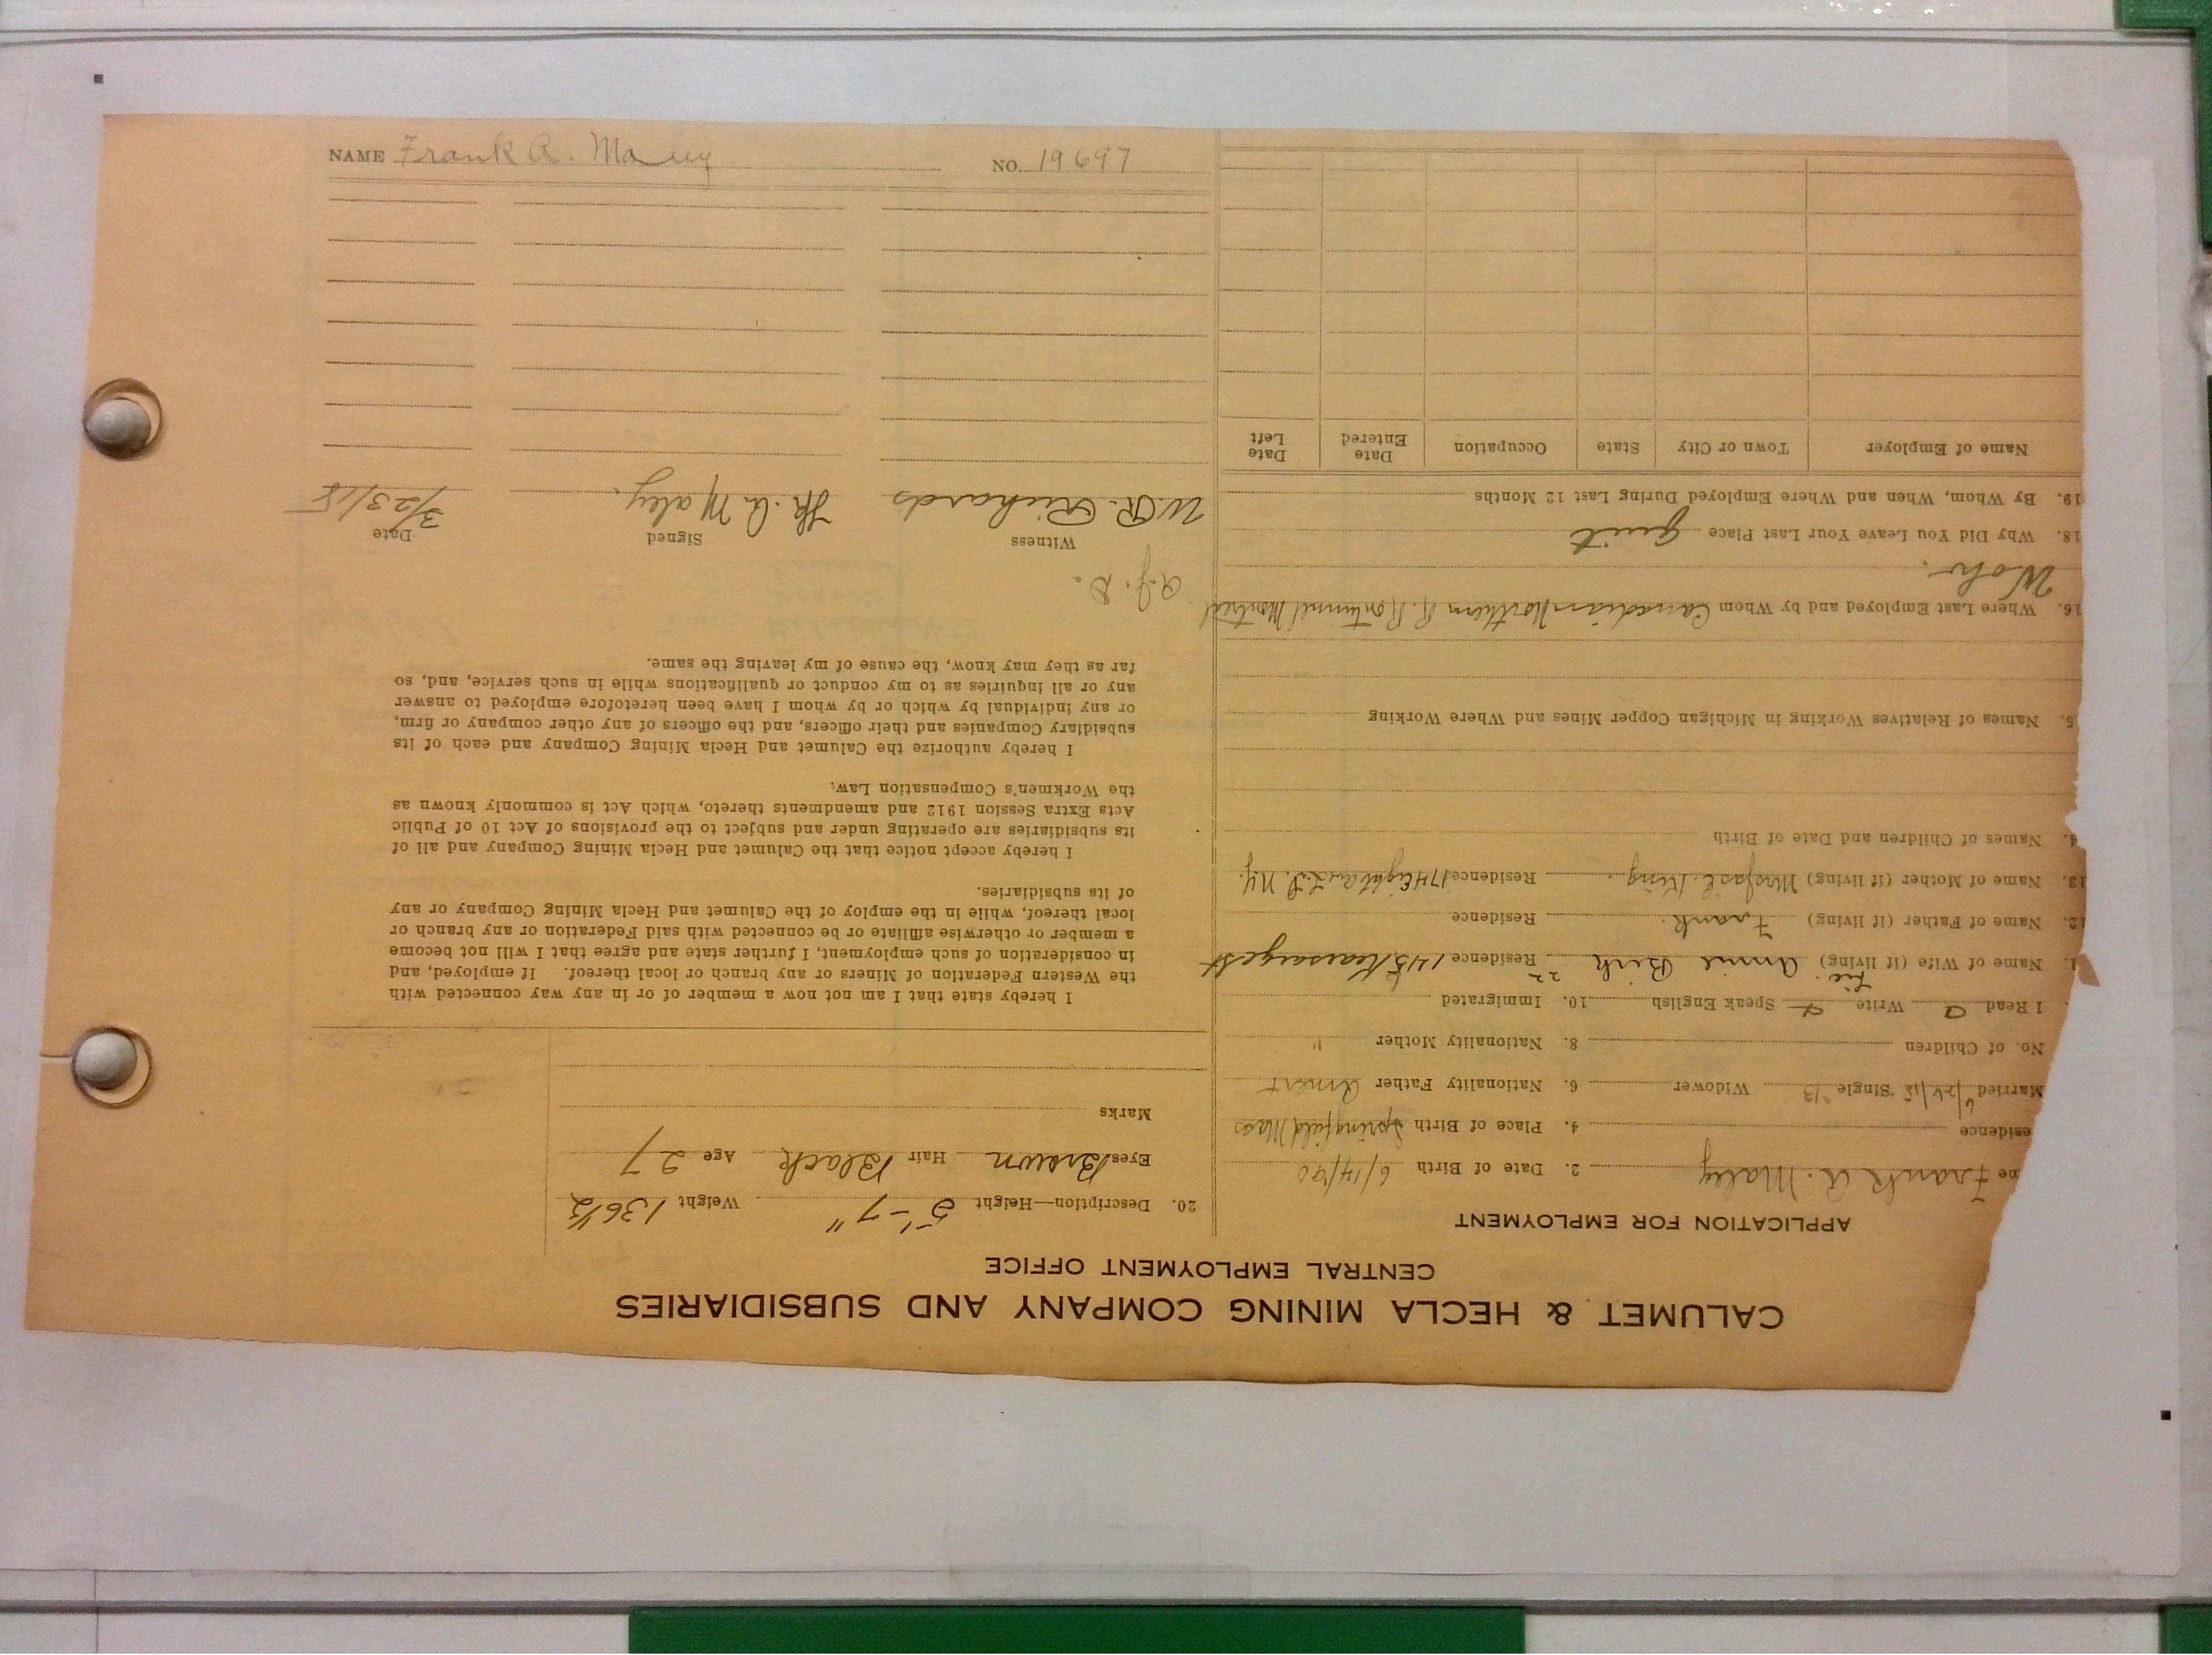 CALUMET & HECLA MINING COMPANY AND SUBSIDIARIES
CENTRAL EMPLOYMENT OFFICE
APPLICATION FOR EMPLOYMENT
me Frank A. Maley 2. Date of Birth 6/14/90
esidence 4. Place of Birth Springfield Mass
Married 6/24/15 Single Widower 6. Nationality Father
No. of Children 8. Nationality Mother "
I Read Write Speak English 10. Immigrated
1. Name of Wife (if living) Annie Residence 145 Kearsarge St
12. Name of Father (if living) Frank. Residence
13. Name of Mother (if living) King. Residence N.Y.
4. Names of Children and Date of Birth
5. Names of Relatives Working in Michigan Copper Mines and Where Working
16. Where Last Employed and by Whom Canadian Northern R. R. on tunnel Montreal
18. Why Did You Leave Your Last Place quit
19. By Whom, When and Where Employed During Last 12 Months
Name of Employer Town or City State Occupation Date Entered Date Left
20. Description—Height 5'-7" Weight 136 1/2
Eyes Brown Hair Black Age 27
Marks
I hereby state that I am not now a member of or in any way connected with
the Western Federation of Miners or any branch or local thereof. If employed, and
in consideration of such employment, I further state and agree that I will not become
a member or otherwise affiliate or be connected with said Federation or any branch or
local thereof, while in the employ of the Calumet and Hecla Mining Company or any
of its subsidiaries.
I hereby accept notice that the Calumet and Hecla Mining Company and all of
its subsidiaries are operating under and subject to the provisions of Act 10 of Public
Acts Extra Session 1912 and amendments thereto, which Act is commonly known as
the Workmen's Compensation Law.
I hereby authorize the Calumet and Hecla Mining Company and each of its
subsidiary Companies and their officers, and the officers of any other company or firm,
or any individual by which or by whom I have been heretofore employed to answer
any or all inquiries as to my conduct or qualifications while in such service, and, so
far as they may know, the cause of my leaving the same.
Witness Signed Date
W.R. Richards A. Maley. 3/23/18
NAME Frank A. Maley NO. 19697